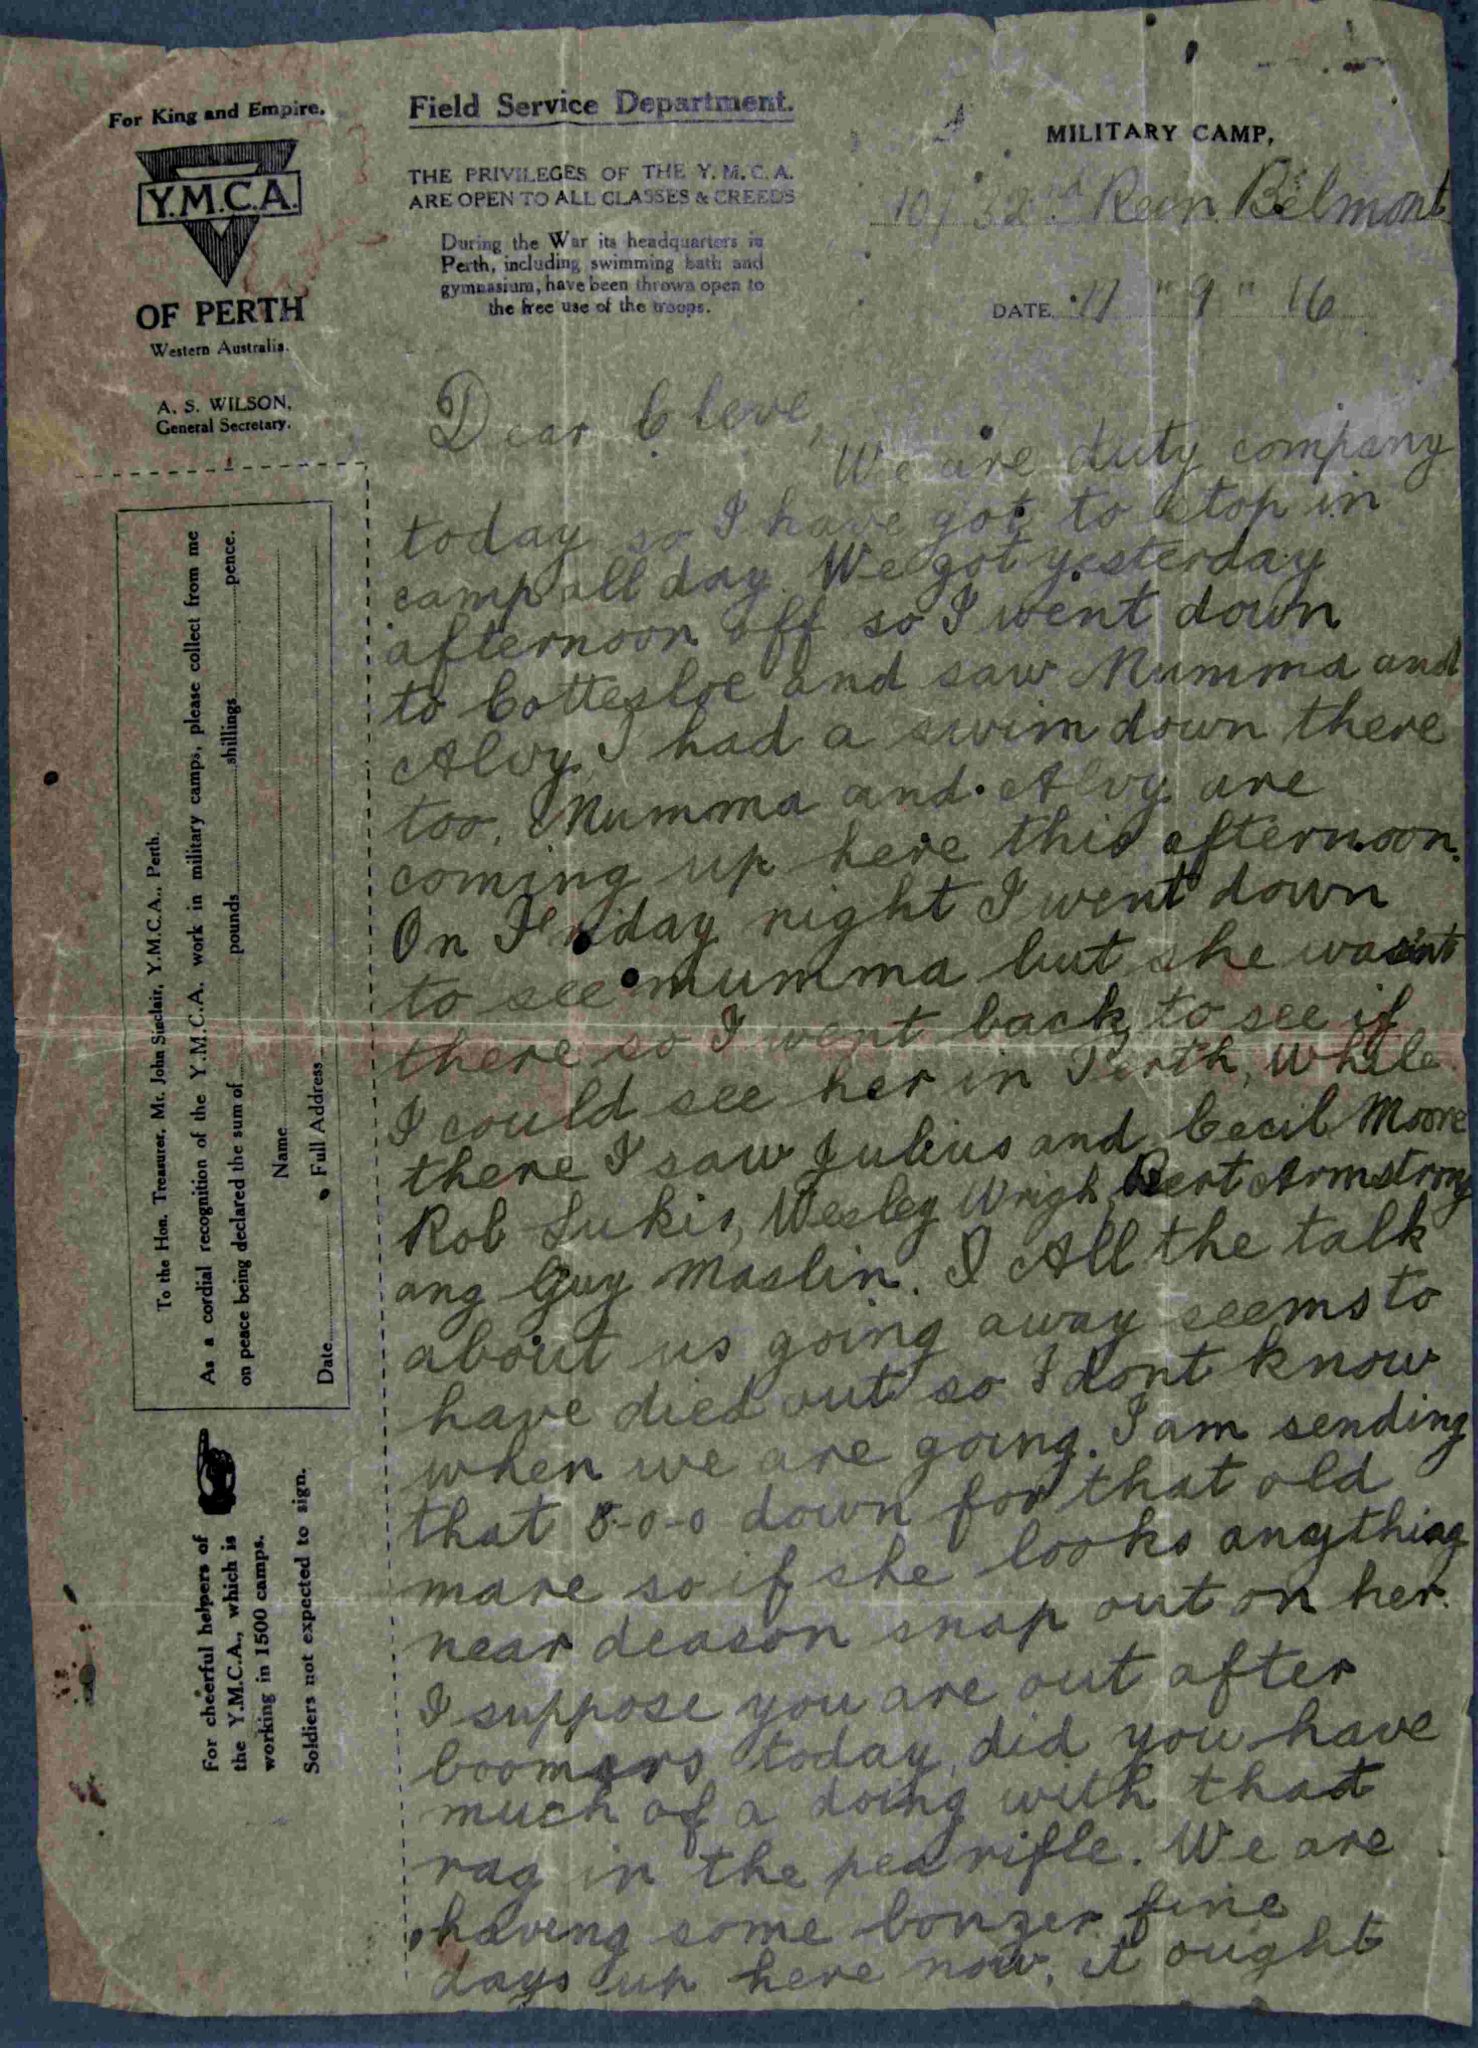 For King and Empire.
Y.M.C.A.
OF PERTH
Western Australia.
A. S. WILSON,
General Secretary.
Field Service Department.
THE PRIVILEGES OF THE Y. M. C. A.
ARE OPEN TO ALL CLASSES & CREEDS
During the War its headquarters in
Perth, including swimming bath and
gymnasium, have been thrown open to
the free use of the troops.
MILITARY CAMP,
10/32nd Rein Belmont
DATE 17 " 9 " 16
Dear Cleve,
We are duty company
today so I have got to stop in
camp all day. We got yesterday
afternoon off so I went down
to Cottesloe and saw Mumma and
Alvy, I had a swim down there
too. Mumma and Alvy are
coming up here this afternoon.
On Friday night I went down
to see mumma but she wasnt
there so I went back to see if
I could see her in Perth, while
there I saw Julius and Cecil Moore
Rob Lukis, Wesley Wrigh, Bert Armstrong
ang Guy Maslin. I All the talk
about us going away seems to
have died out so I dont know
when we are going. I am sending
that 8-0-0 down for that old
mare so if she looks anything
near deason snap out on her.
I suppose you are out after
boomers today, did you have
much of a doing with that
rag in the pea rifle. We are
having some bonzer fine
days up here now, it ought
To the Hon. Treasurer, Mr. John Sinclair, Y.M.C.A., Perth.
As a cordial recognition of the Y.M.C.A. work in military camps, please collect from me
on peace being declared the sum of pounds shillings pence.
Name
Date Full Address
For cheerful helpers of
the Y.M.C.A., which is
working in 1500 camps.
Soldiers not expected to sign.